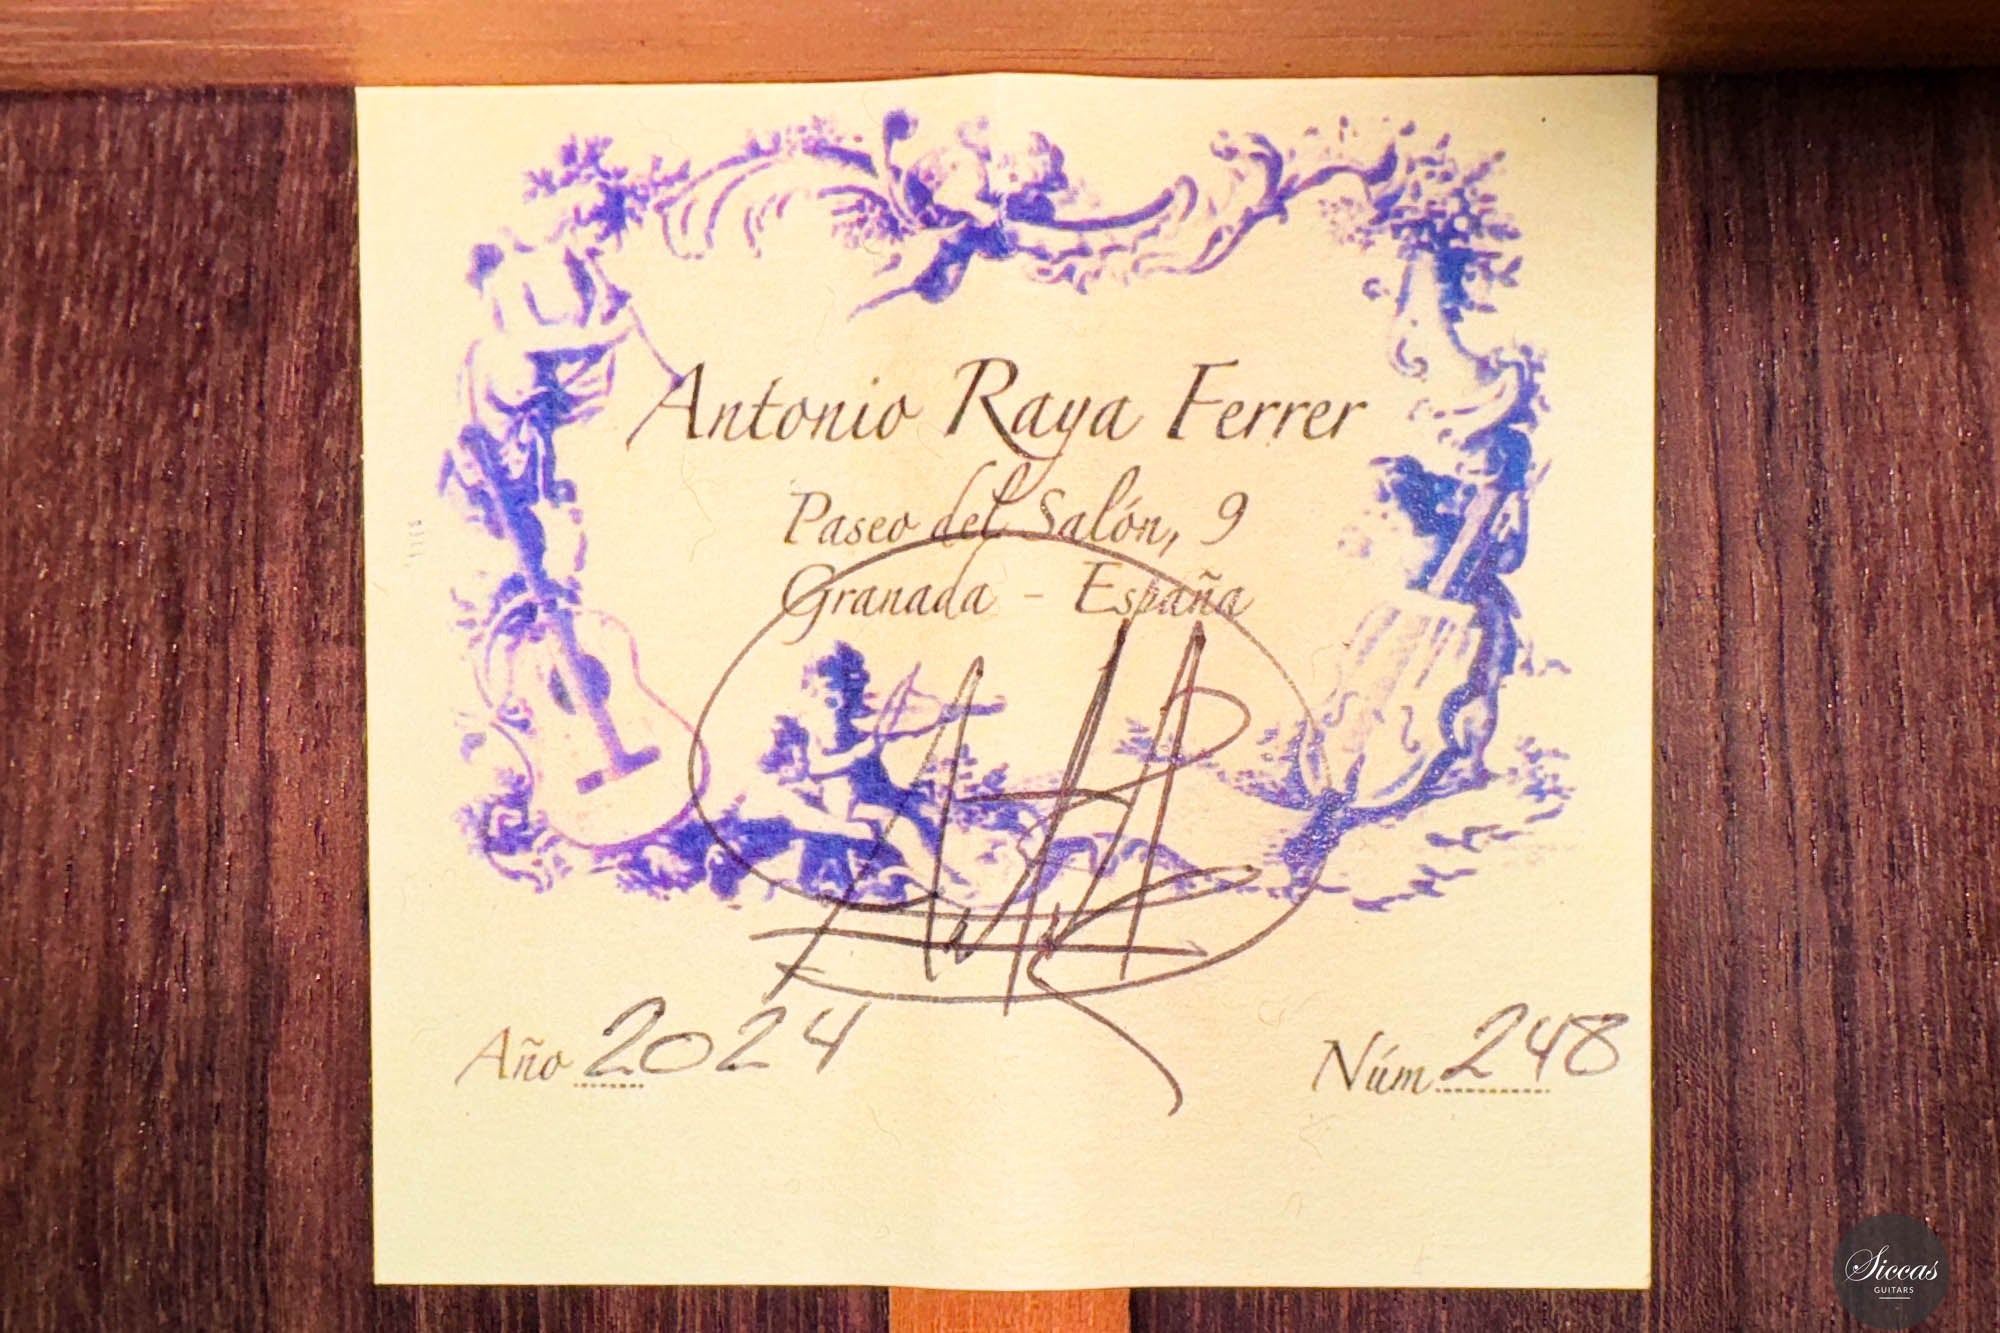 Antonio Raya Ferrer
Paseo del Salón, 9
Granada - España
Año 2024
Núm 248
Siccas
GUITARS